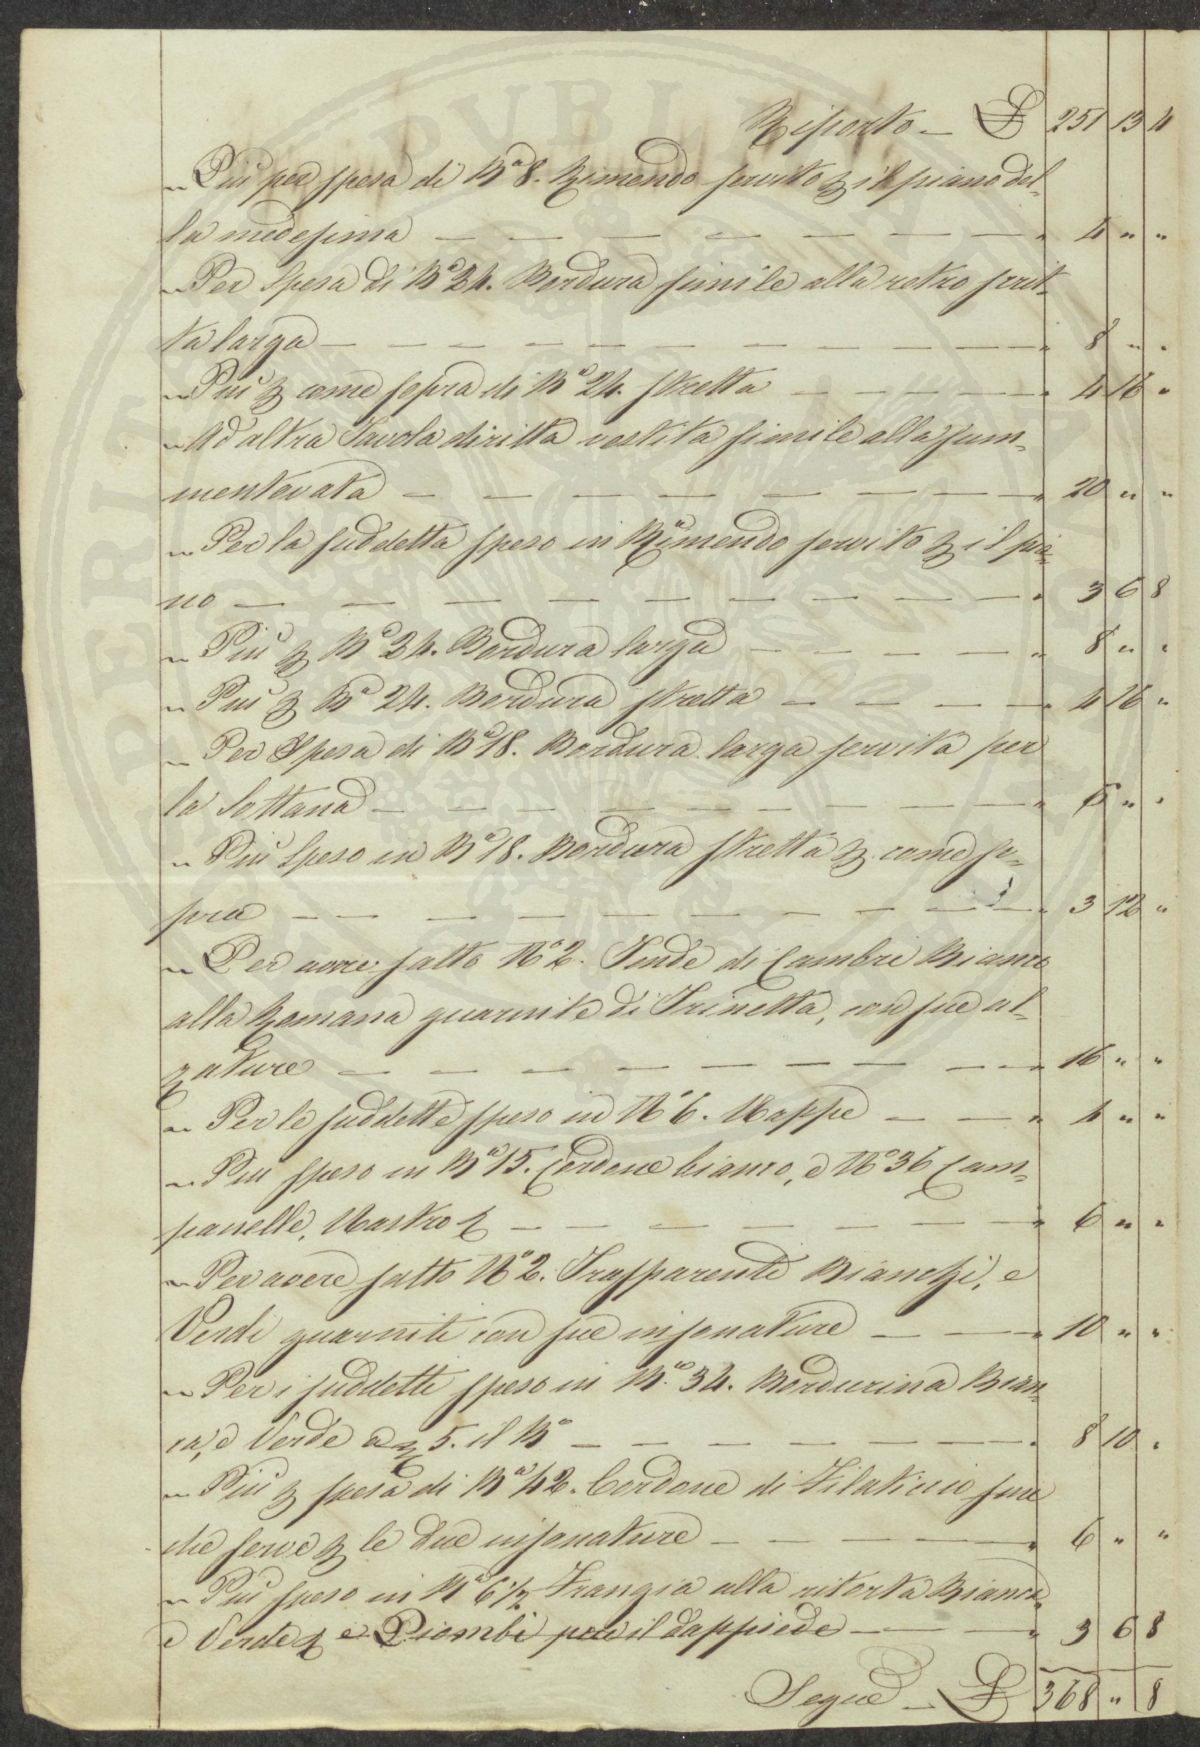 Riporto — £ 251 13 4
" Più per spesa di B.a 8. Rimendo servito p il piano del-
la medesima — 4 " "
" Per Spesa di B.a 24. Bordura simile alla retro scrit-
ta larga — 8 " "
" Più p come sopra di B.a 24. stretta — 4 16 "
" Ad altra Tavola diritta vestita simile alla sum-
mentovata — 20 " "
" Per la suddetta speso in Rimendo servito p il pia-
no — 3 6 8
" Più p B.a 24. Bordura larga — 8 " "
" Più p B.a 24. Bordura stretta — 4 16 "
" Per Spesa di B.a 18. Bordura larga servita per
la Sottana — 6 " "
" Più Speso in B.a 18. Bordura stretta p come so-
pra — 3 12 "
" Per avere fatto N.o 2. Tende di Cambri Bianco
alla Romana guarnite di Trinetta, con sue al-
zature — 16 " "
" Per le suddette speso in N.o 6. Nappe — 4 " "
" Più speso in B.a 15. Cordone bianco, e N.o 36 Cam-
panelle, Nastro — 6 " "
" Per avere fatto N.o 2. Trasparenti Bianchi, e
Verdi guarniti con sue insonature — 10 " "
" Per i suddetti speso in B.a 34. Bordurina Bian-
ca, e Verde a 5. il B.o — 8 10 "
" Più p spesa di B.a 42. Cordone di Filaticcio fine
che serve p le due insonature — 6 " "
" Più speso in B.a 6 1/2 Frangia alla ritorta Bianca
e Verde e Piombi per il dappiede — 3 6 8
Segue — £ 368 " 8
PERIT PUBLI